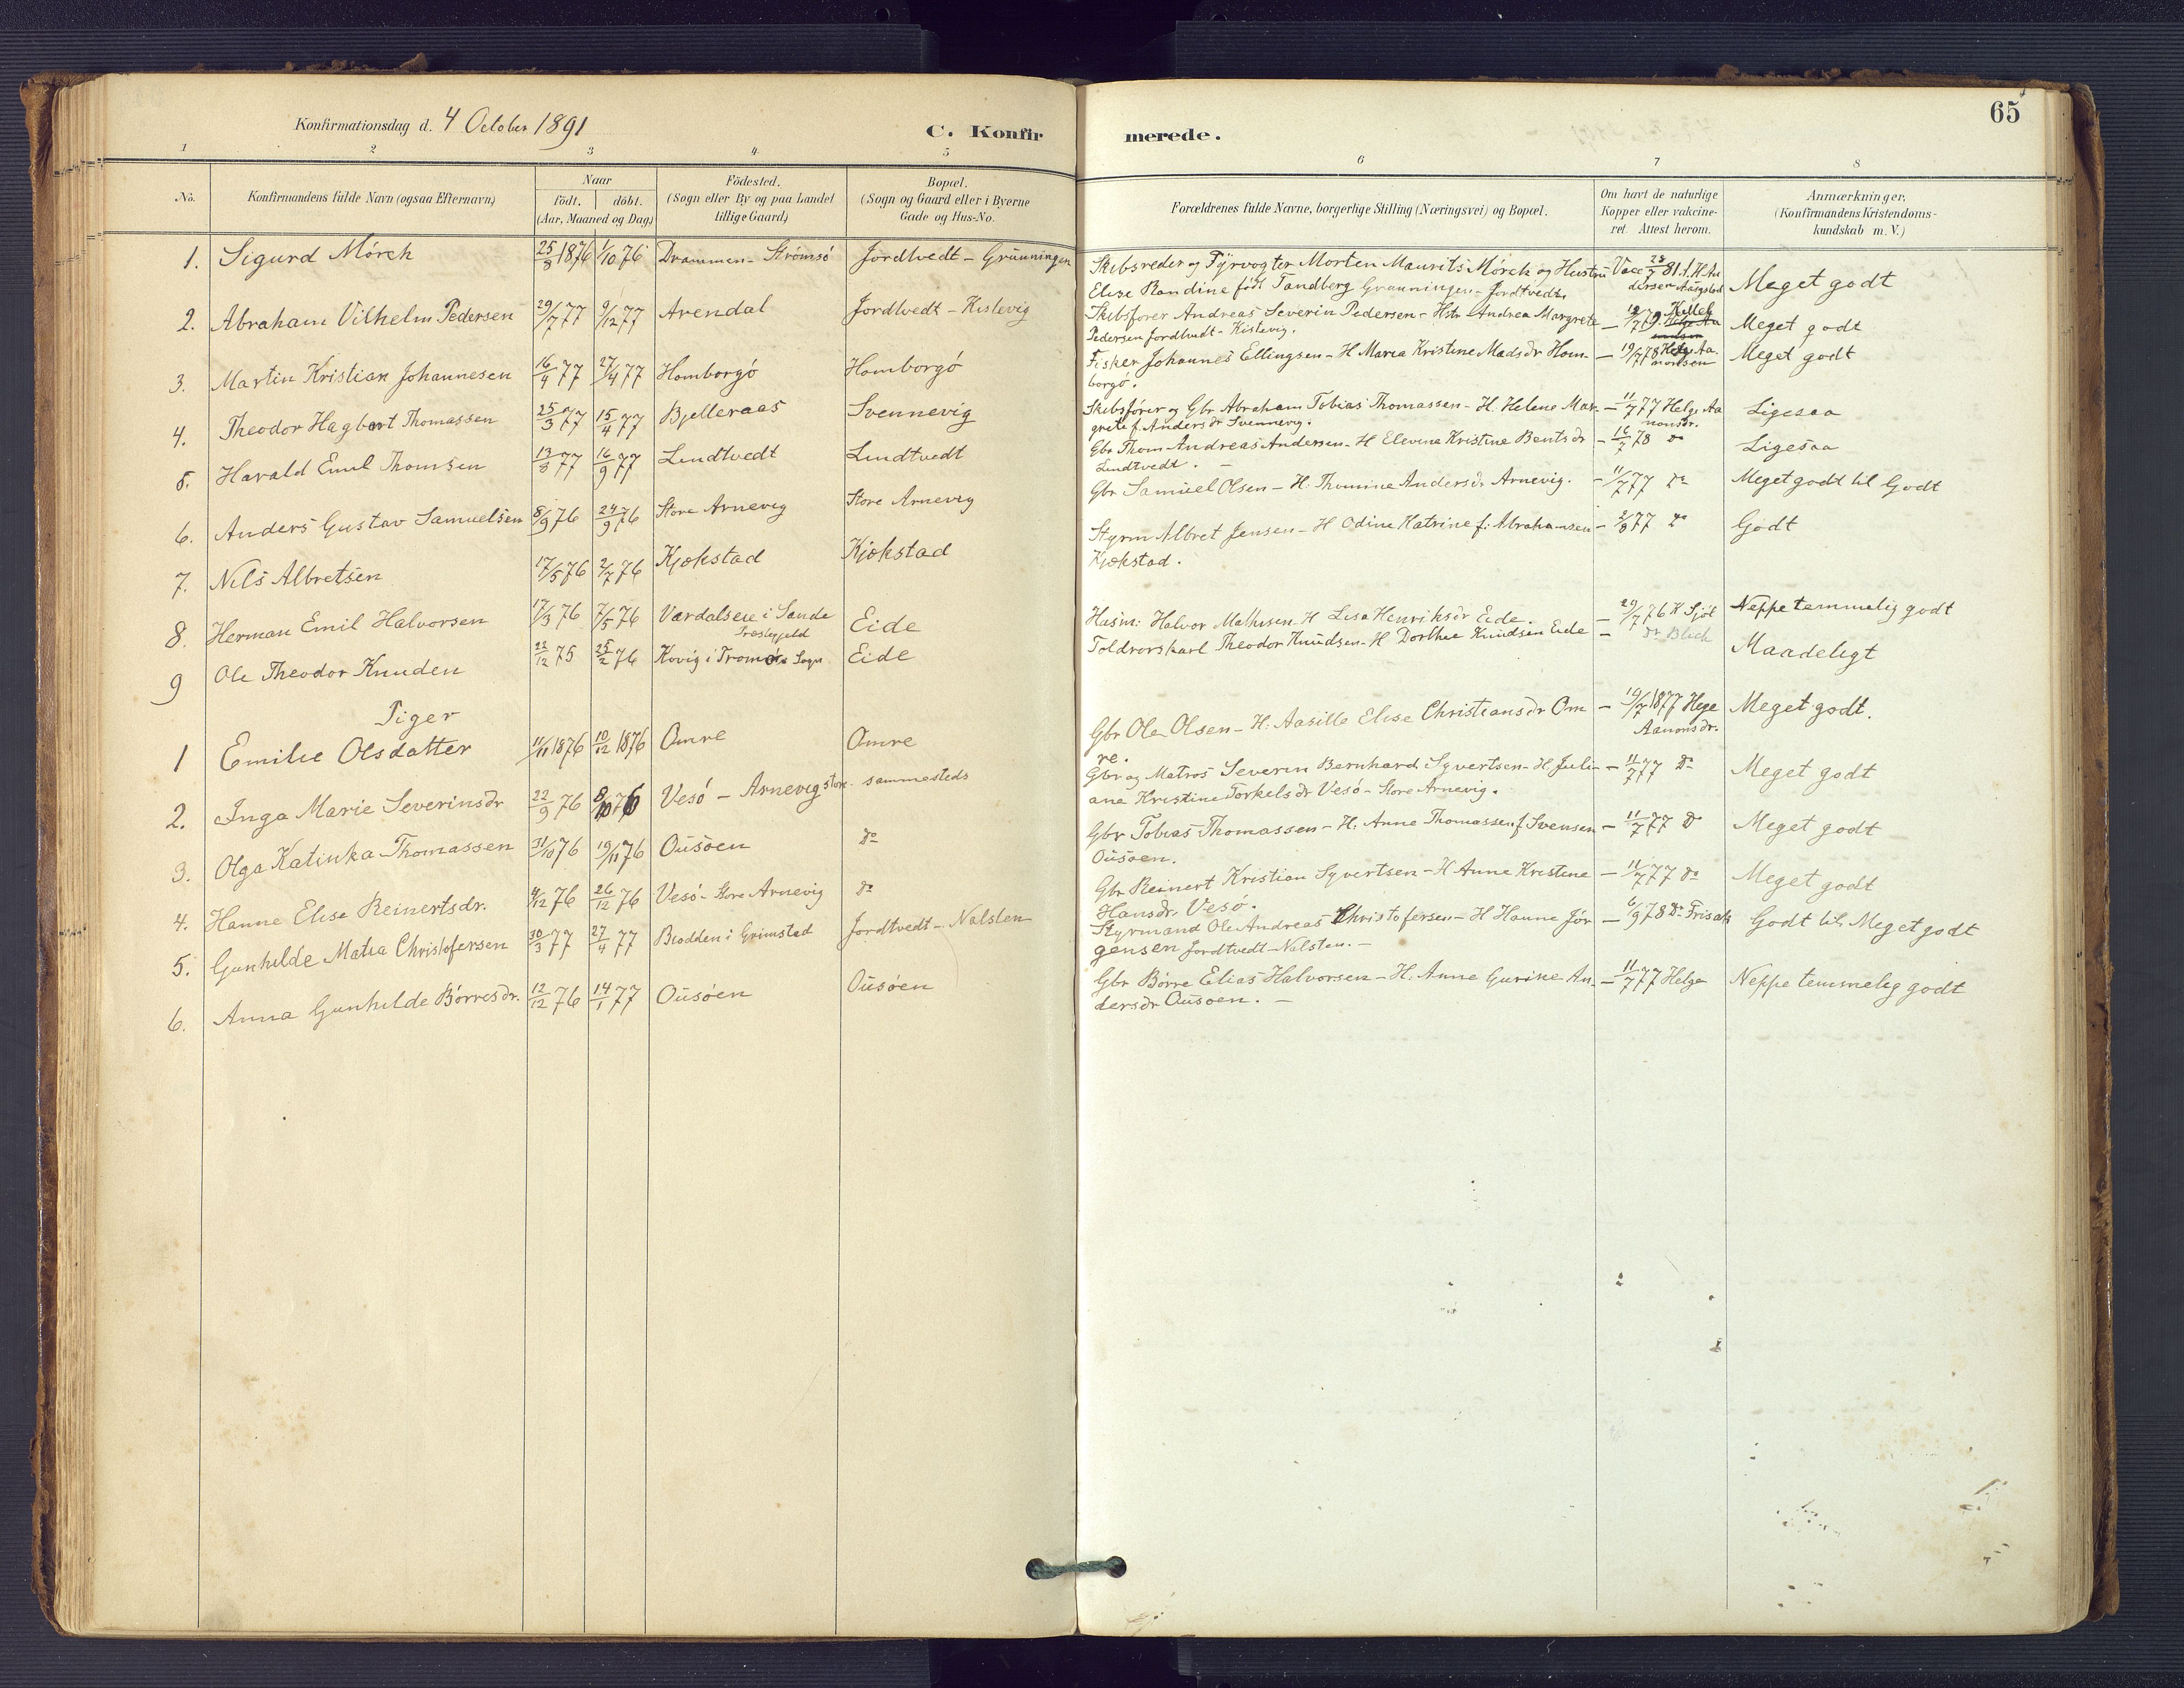 Konfirmationsdag d. 4 October 1891
C. Konfirmerede.
65
1 2 3 4 5 6 7 8
No.
Konfirmandens fulde Navn (ogsaa Efternavn)
Naar
födt. döbt.
(Aar, Maaned og Dag)
Födested.
(Sogn eller By og paa Landet
tillige Gaard)
Bopæl.
(Sogn og Gaard eller i Byerne
Gade og Hus-No.
Forældrenes fulde Navne, borgerlige Stilling (Næringsvei) og Bopæl.
Om havt de naturlige
Kopper eller vakcine-
ret. Attest herom.
Anmærkninger.
(Konfirmandens Kristendoms-
kundskab m. V.)
1. Sigurd Mörch 25/8 1876 1/10 76 Drammen - Strömsö Jordtvedt - Grünningen
Skibsreder og Fyrvogter Morten Maurits Mörch og Hustru Vacc 28/7 81.
Elise Randine född Tandberg Grünningen - Jordtvedt. Meget godt
2. Abraham Vilhelm Pedersen 29/7 77 9/12 77 Arendal Jordtvedt - Kislevig
Skibsförer Andreas Severin Pedersen - Hstr Andrea Margrete
Pedersen Jordtvedt - Kislevig. Meget godt
3. Martin Kristian Johannesen 16/4 77 27/4 77 Homborgö Homborgö
Fisker Johannes Ellingsen - H Maria Kristine Madsdr Hom- 19/7 78 Helge Aa.
borgö. nonsen Meget godt
4. Theodor Hagbart Thomassen 25/3 77 15/4 77 Bjelleraas Svennevig
Skibsförer og Gbr Abraham Tobias Thomassen - H. Helene Mar- 11/7 77 Helge Aa
grete f. Andersdr Svennevig. nonsdr. Ligesaa
5. Harald Emil Thomsen 13/8 77 16/9 77 Lindtvedt Lindtvedt
Gbr Thom Andreas Andersen - H Elevine Kristine Bentsdr - 16/7 78 do Ligesaa
Lindtvedt.
6. Anders Gustav Samuelsen 8/9 76 24/9 76 Store Arnevig Store Arnevig
Gbr Samuel Olsen - H. Thomine Andersdr Arnevig. - 11/7 77 do Meget godt til Godt
7. Nils Albretsen 17/5 76 2/7 76 Kjøkstad Kjøkstad
Styrm Albret Jensen - H Odine Katrine f. Abrahamsen - 2/9 77 do Godt
Kjøkstad.
8. Herman Emil Halvorsen 17/3 76 7/5 76 Værdalseie i Sande Præstegjeld Eide
Husm: Halvor Mathisen - H Lisa Henriksdr Eide. - 29/7 76 K Sjöl Neppe temmelig godt
9 Ole Theodor Knuden 22/12 75 25/2 76 Kovig i Tromö Sogn Eide
Toldrorskarl Theodor Knudsen - H Dorthea Knudsen Eide - Dr Blich Maadeligt
Piger
1 Emilie Olsdatter 11/11 1876 10/12 1876 Omre Omre
Gbr Ole Olsen - H. Aasille Elise Christiansdr Om - 19/7 1877 Hege Meget godt.
re. Aanonsdr.
2. Inga Marie Severinsdr 22/9 76 8/10 76 Vesö - Arnevig store - sammesteds
Gbr og Matros Severin Bernhard Syvertsen - H. Juli - 11/7 77 do Meget godt
ane Kristine Torkelsdr Vesö - Store Arnevig.
3. Olga Katinka Thomassen 31/10 76 19/11 76 Ousöen do
Gbr Tobias Thomassen - H. Anne Thomassen f Svensen - 11/7 77 do Meget godt
Ousöen.
4. Hanne Elise Reinertsdr. 4/12 76 26/12 76 Vesö - Store Arnevig do
Gbr Reinert Kristian Syvertsen - H Anne Kristine - 11/7 77 do Meget godt
Hansdr. Vesö.
5. Gunhilde Matea Christofersen 30/3 77 27/4 77 Brodden i Grimstad Jordtvedt - Nalsten
Styrmand Ole Andreas Christofersen - H Hanne Jör - 6/9 78 Dr Frisak Godt til Meget godt
gensen Jordtvedt - Nalsten. -
6. Anna Gunhilde Börresdr. 12/12 76 14/1 77 Ousöen Ousöen
Gbr Börre Elias Halvorsen - H. Anne Gurine An- - 11/7 77 Helge Neppe temmelig godt
dersdr Ousoen. -